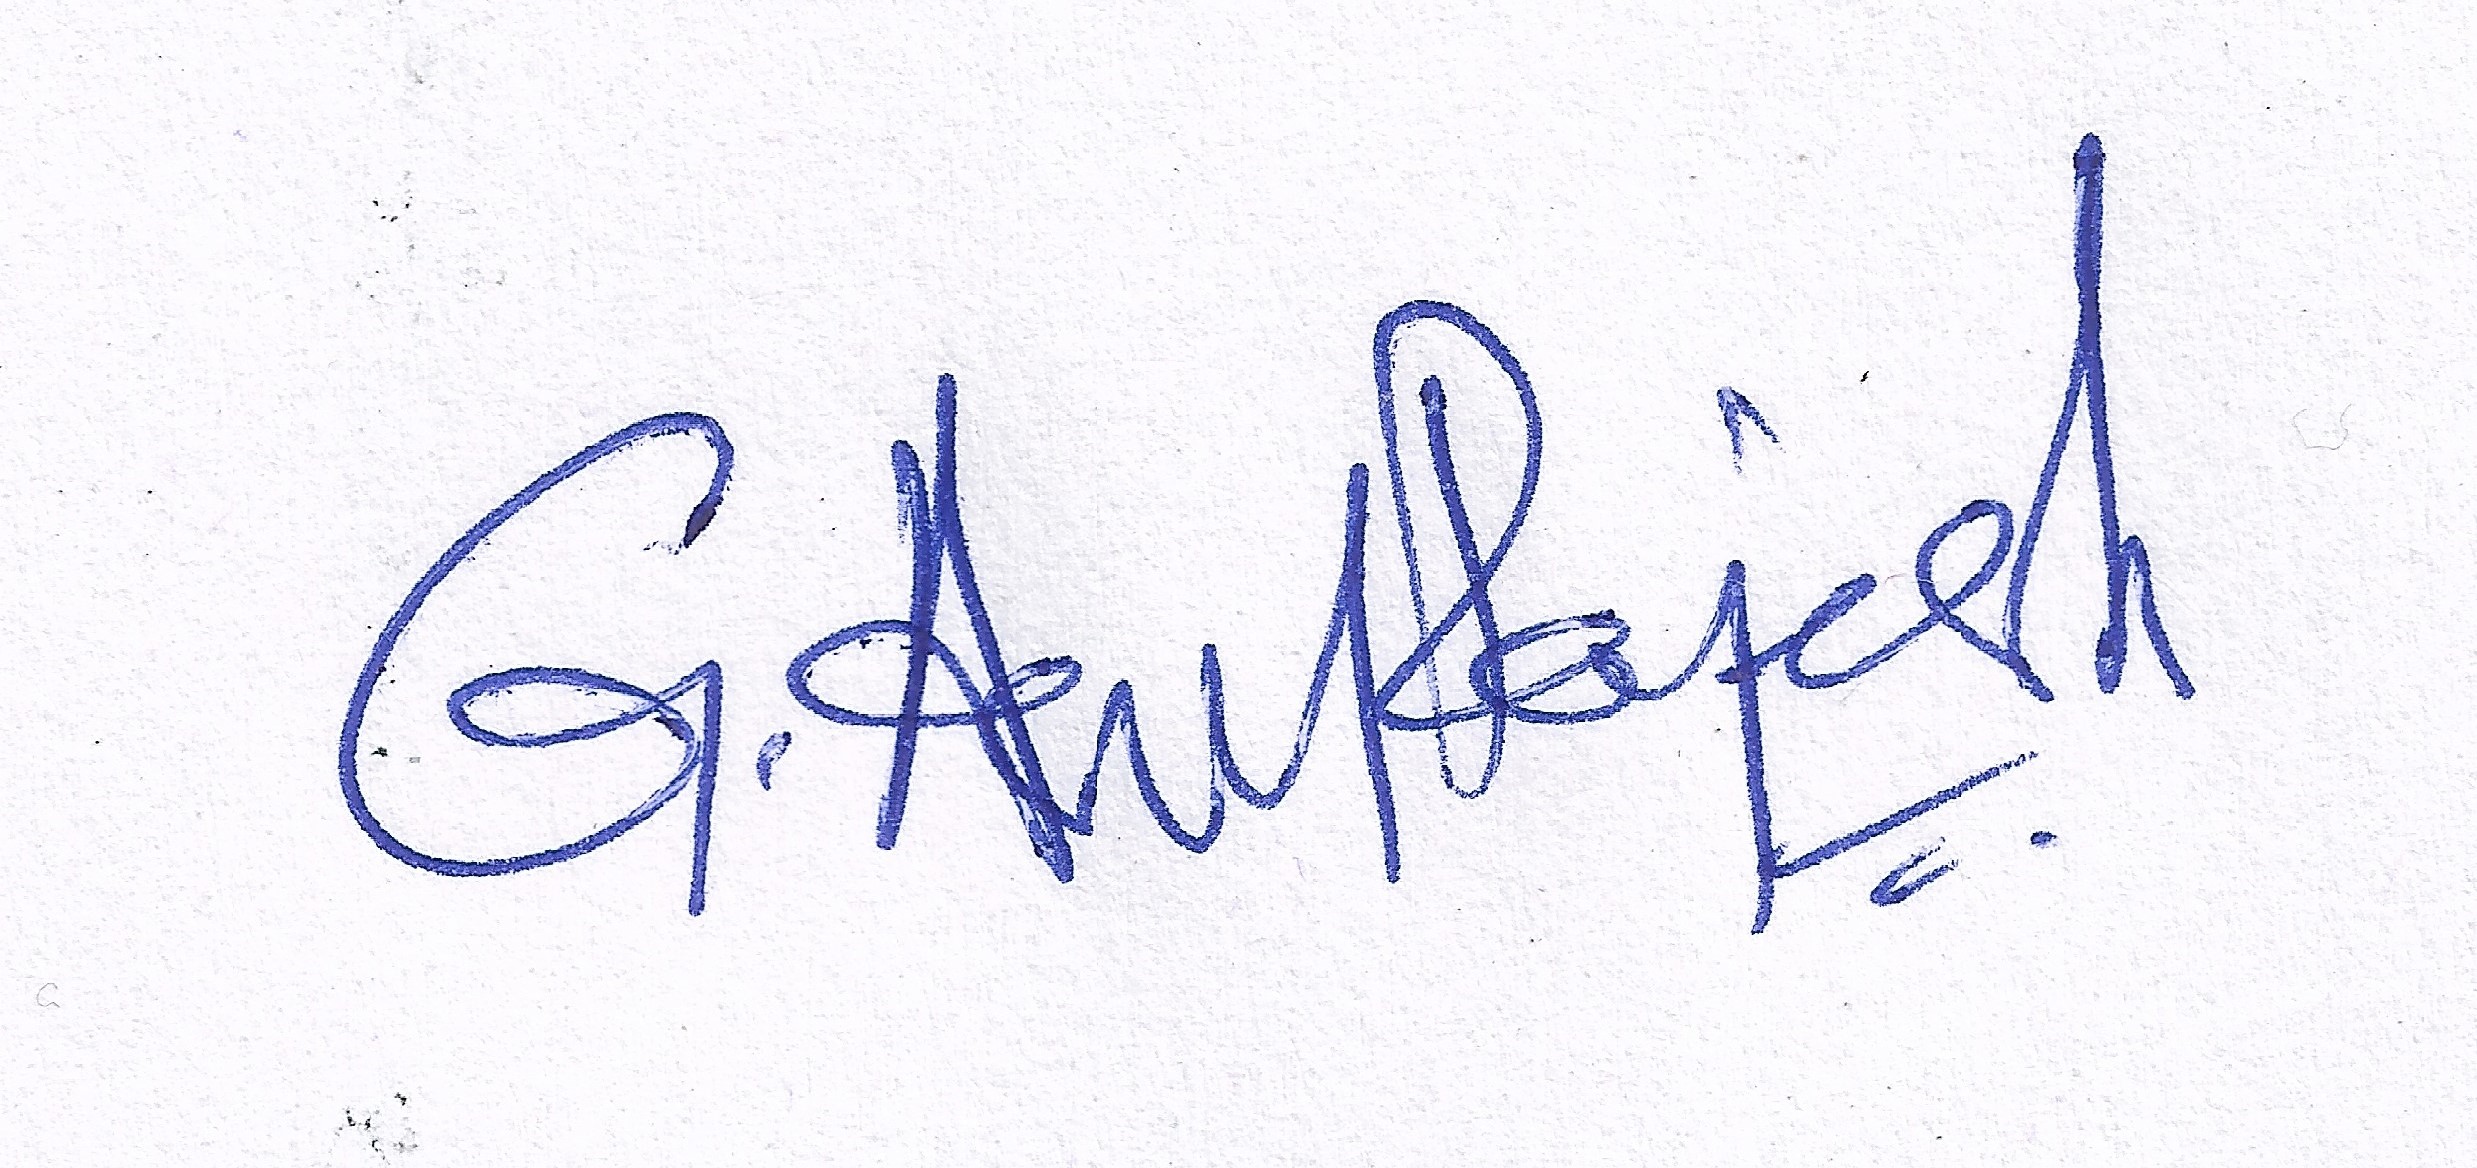 G. Arul Rajesh